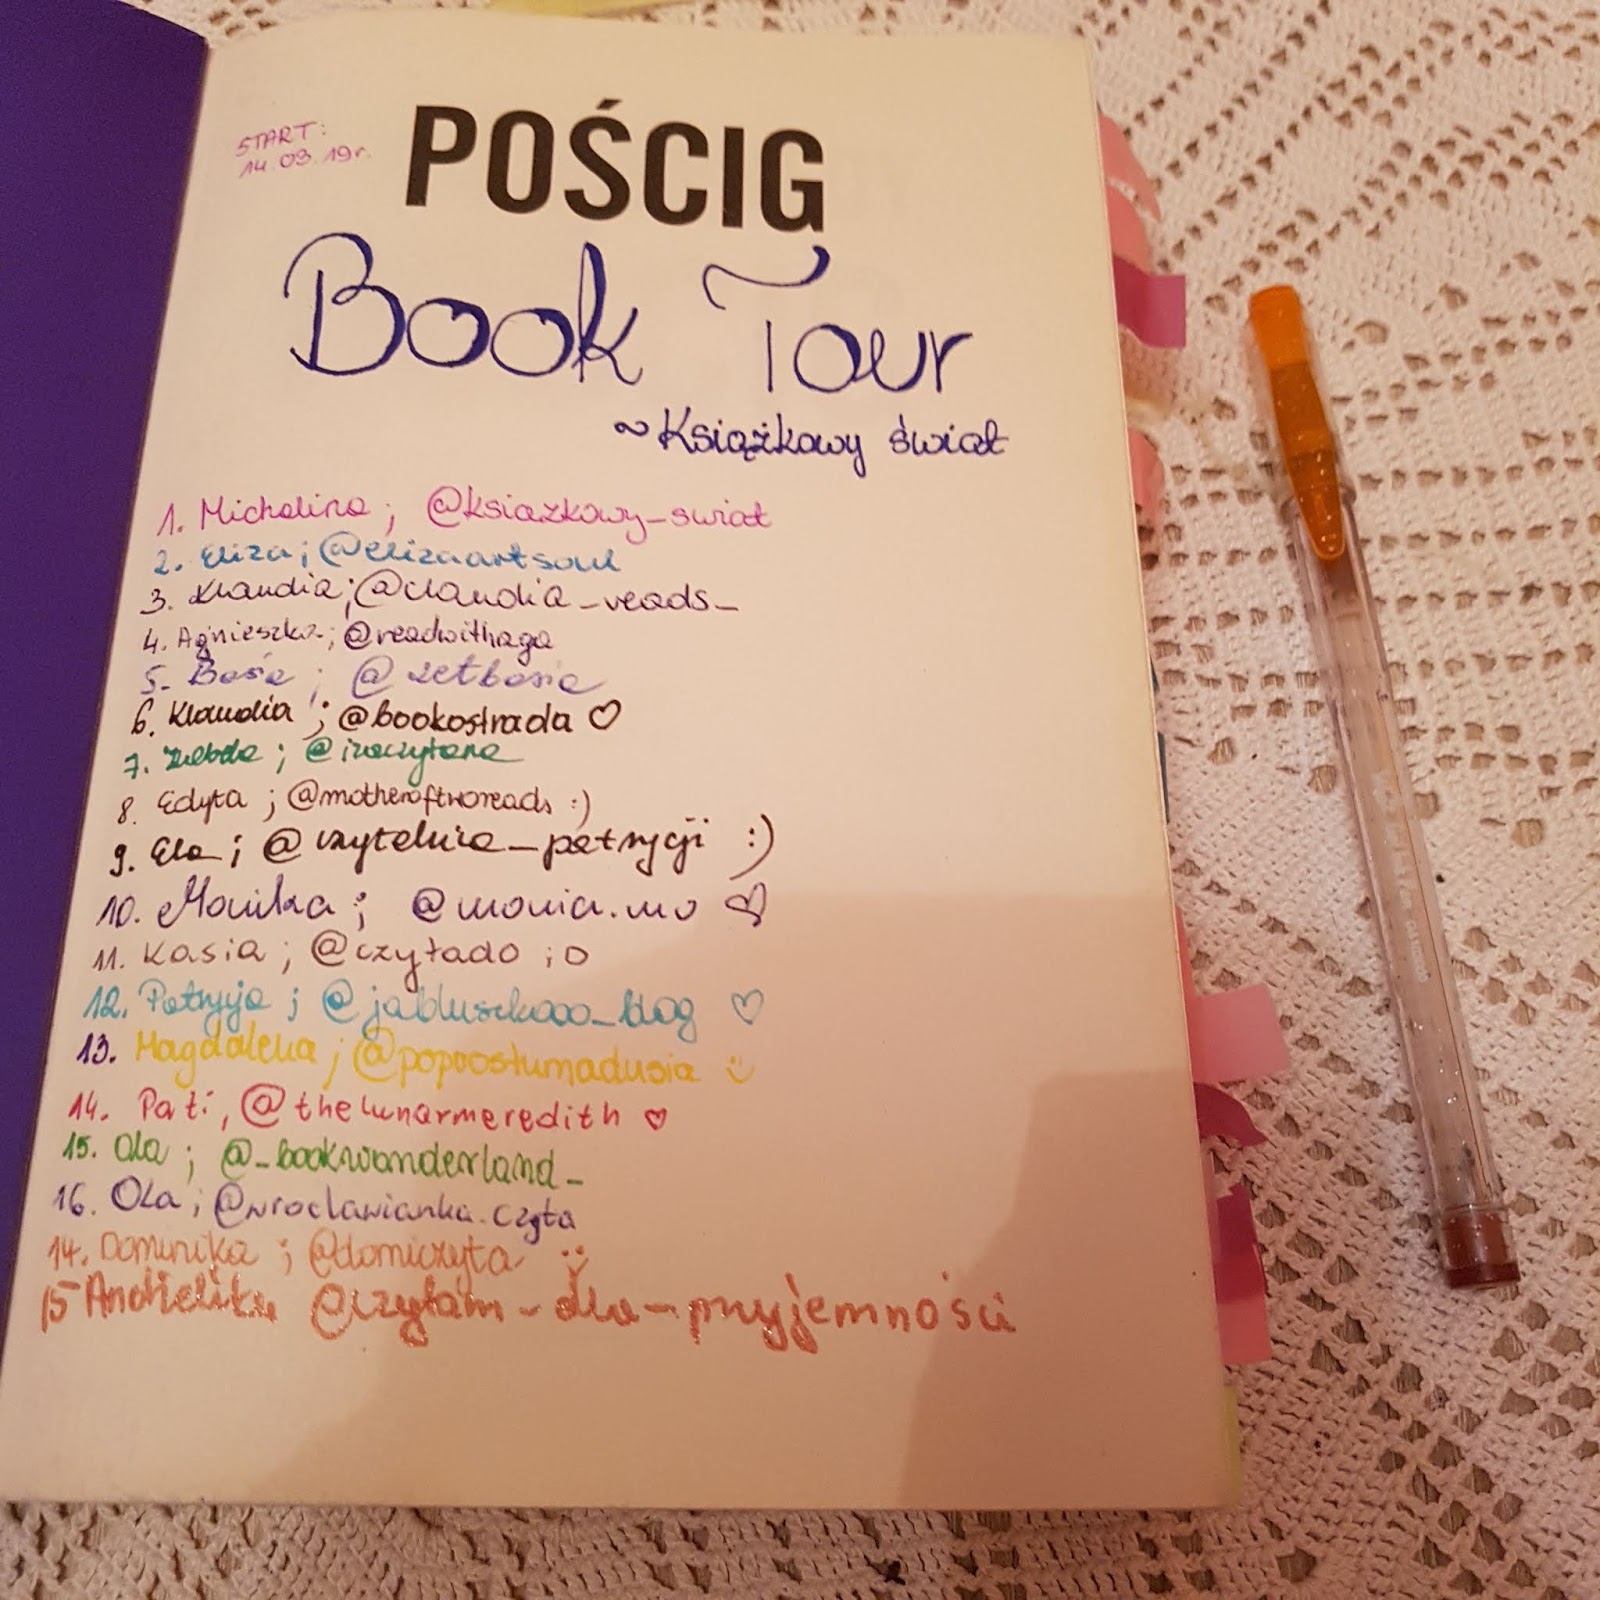 START:
14.03.19r.
POŚCIG
Book Tour
~Książkowy świat
1. Michalina ; @ksiazkowy_swiat
2. Eliza ; @elizaartsoul
3. Klaudia ; @claudia_reads_
4. Agnieszka ; @readwithaga
5. Basia ; @zetbasia
6. Klaudia ; @bookostrada ♡
7. ; @izaczytana
8. Edyta ; @motheroftworeads :)
9. Ela ; @czytelnia_patrycji :)
10. Monika ; @monia.mo ♡
11. Kasia ; @czytado ;D
12. Patrycja ; @jabluszkooo_blog ♡
13. Magdalena ; @poprostumadusia
14. Pati , @thelunarmeredith ♡
15. Ola ; @_bookwanderland_
16. Ola ; @wroclawianka.czyta
14. Dominika ; @domiczyta
15 Andżelika @czytam_dla_przyjemności